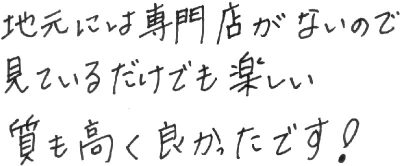 地元には専門店がないので
見ているだけでも楽しい
質も高く良かったです!